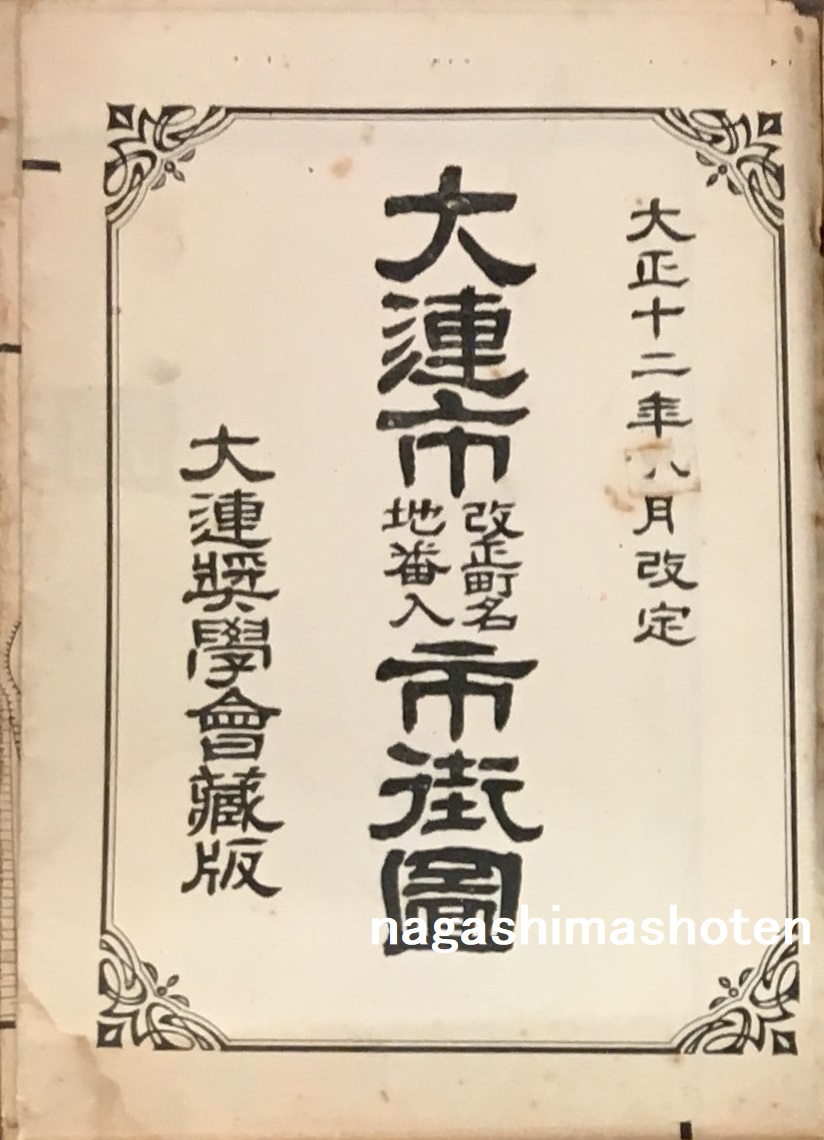 大正十二年八月改定
大連市
改正町名
地番入
市街圖
大連奬學會藏版
nagashimashoten